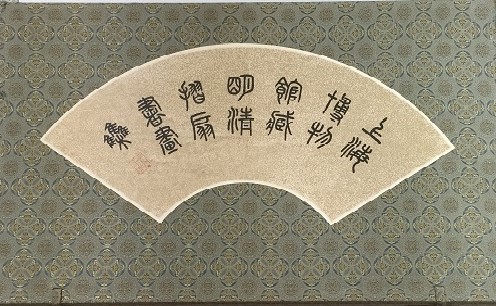 上海
博物
館藏
明清
摺扇
書畫
集